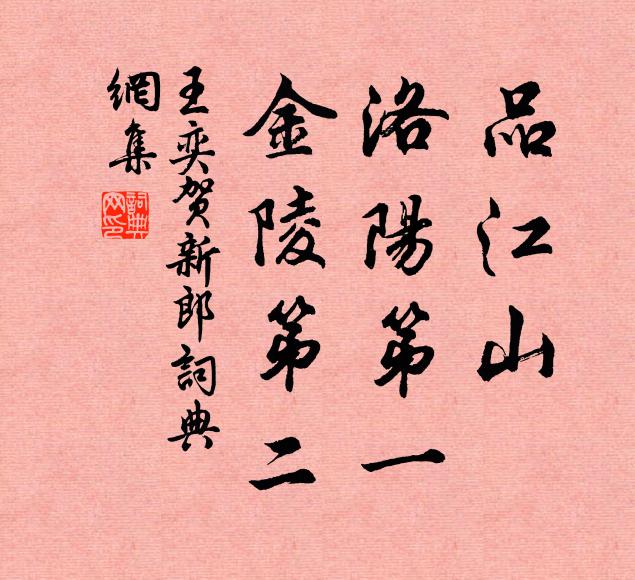 品江山
洛陽第一
金陵第二
王奕賀新郎詞典
網集
詞典網印